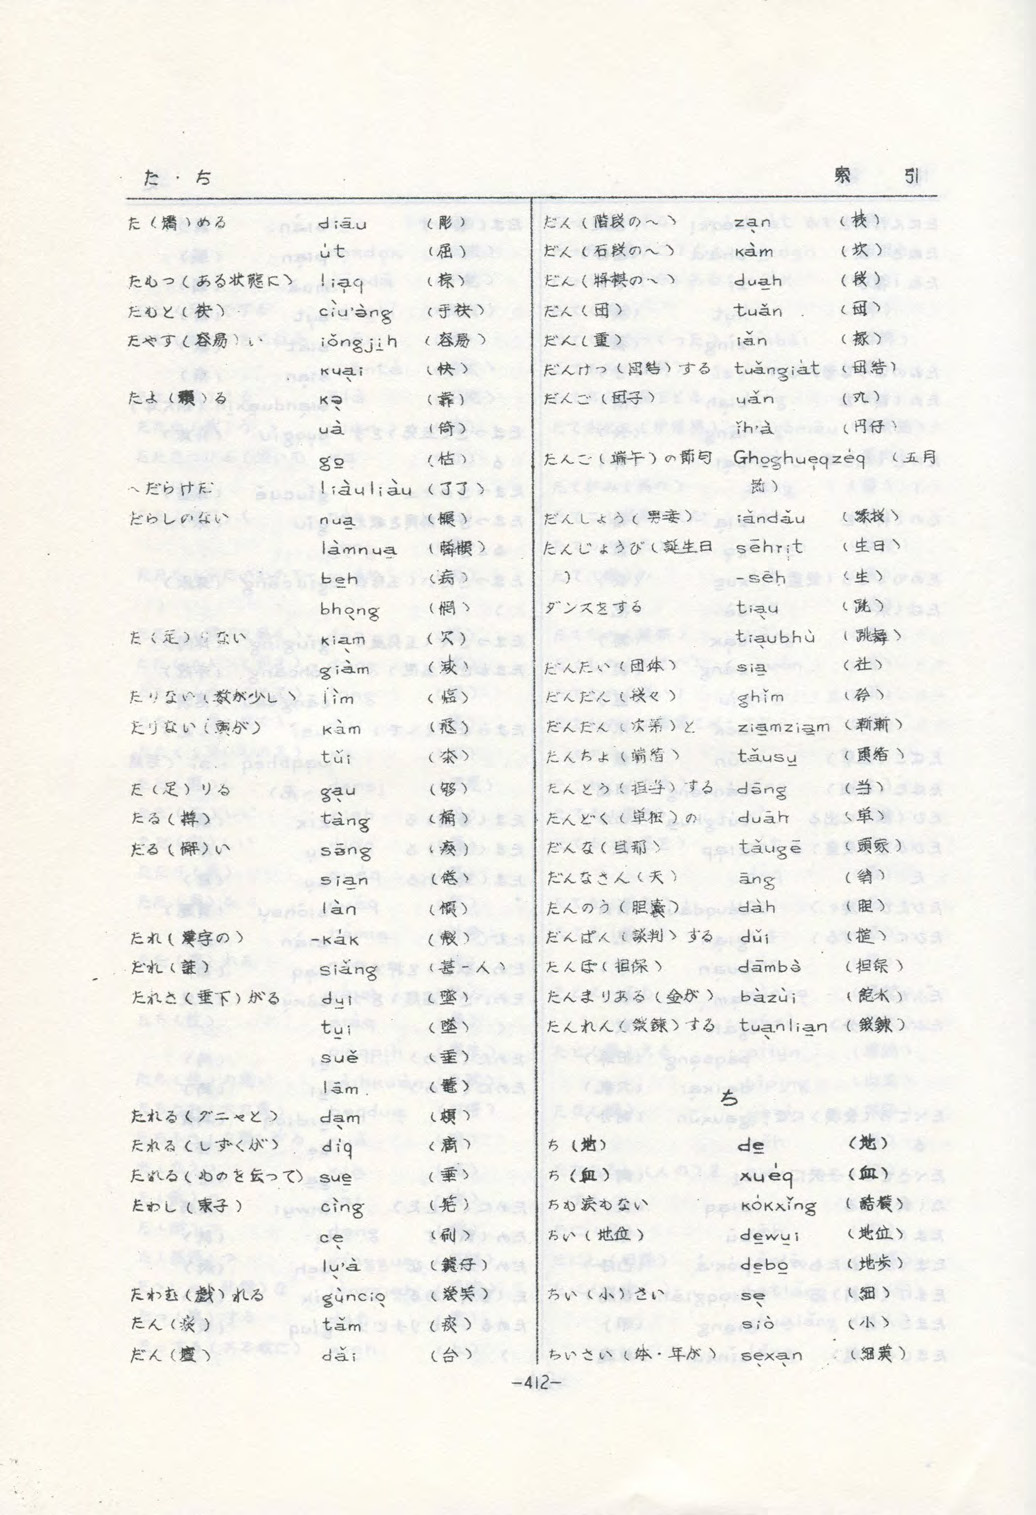 た・ち 索 引
た(矯)める diāu (彫)
u̍t (屈)
たもつ(ある状態に) lia̱q
たもと(袂) ciu'èng (手袂)
たやす(容易)い iǒngji̱h (容易)
ku̱ai (快)
たよ(頼)る kə̣ (靠)
uà (倚)
go̱ (怙)
〜だらけだ liàuliàu (了了)
だらしのない nua̱
làmnua̱
be̱h (病)
bho̱ng
た(足)らない kiạm (欠)
giàm (減)
たりない(数が少し) lìm
たりない(頭が) kàm
tǔi
た(足)りる gạu (够)
たる(樽) tàng (桶)
だる(懈)い sāng (痠)
sia̱n (倦)
làn (懶)
たれ(漢字の) -ka̍k (殼)
だれ(誰) siǎng (甚一人)
たれさ(垂下)がる du̱i
tu̱i (墜)
suě (垂)
lām
たれる(グニャと) dạm (頓)
たれる(しずくが) di̍q (滴)
たれる(ものを伝って) sue̱ (垂)
たわし(束子) cìng (筅)
cẹ (刷)
lụ'à (鑢仔)
たわむ(戯)れる gùnciọ
たん(痰) tǎm (痰)
だん(壇) dǎi (台)
だん(階段の〜) zạn
だん(石段の〜) kàm (坎)
だん(将棋の〜) dua̱h (段)
だん(団) tuǎn (団)
だん(重) iǎn
だんけつ(団結)する tuǎngiàt (団結)
だんご(団子) uǎn (丸)
ǐh'à (円仔)
たんご(端午)の節句 Gho̱ghue̍qzėq (五月
節)
だんしょう(男妾) iǎndǎu
たんじょうび(誕生日 sēhri̍t (生日)
) -sēh (生)
ダンスをする tiạu (跳)
tiạubhù (跳舞)
だんたい(団体) sia̱ (社)
だんだん(段々) ghǐm
だんだん(次第)と zia̱mzia̱m (漸漸)
たんちょ(端緒) tǎusu̱ (頭緒)
たんとう(担当)する dāng (当)
たんどく(単独)の duāh (単)
だんな(旦那) tǎugē (頭家)
だんなさん(夫) āng (翁)
たんのう(胆嚢) dàh (胆)
だんぱん(談判)する dǔi
たんぽ(担保) dāmbè (担保)
たんまりある(金が) bàzùi (飽水)
たんれん(鍛錬)する tuạnlia̱n (鍛錬)
ち
ち(地) de̱ (地)
ち(血) xuėq (血)
ちも涙もない kȯkxǐng
ちい(地位) de̱wu̱i (地位)
de̱bo̱ (地歩)
ちい(小)さい sẹ (細)
siò (小)
ちいさい(体・年が) sẹxạn (細漢)
-412-